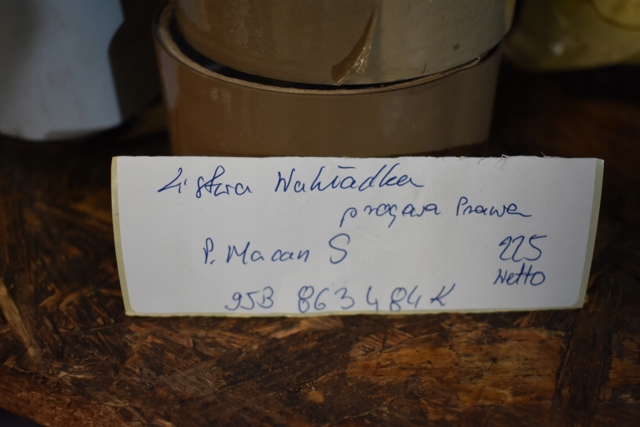 Listwa Nakładka
progowa Prawa
P. Macan S 225
Netto
95B 863 484 K